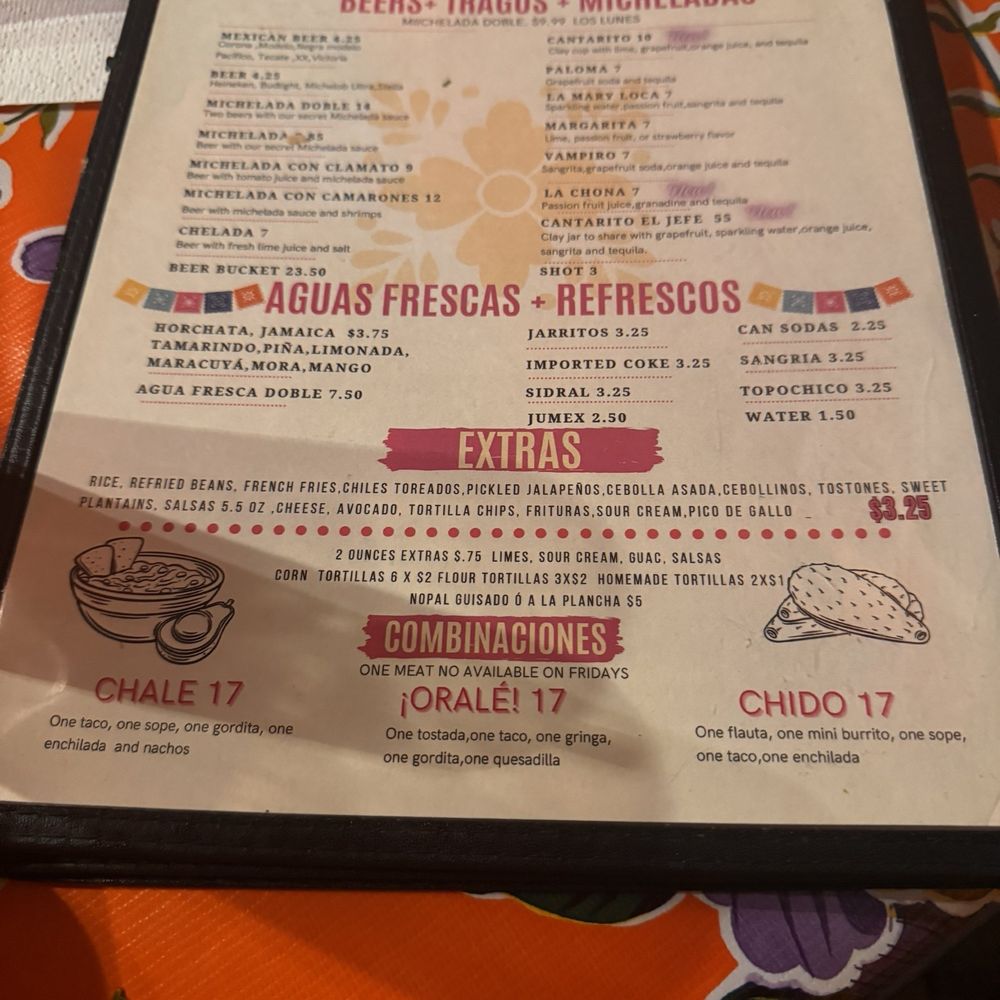 BEERS+ TRAGOS + MICHELADAS
MIICHELADA DOBLE. $9.99 LOS LUNES
MEXICAN BEER 4.25
Corona ,Modelo,Negra modelo
Pacifico, Tecate ,XX,Victoria
BEER 4.25
Heineken, Budlight, Michelob Ultra,Stella
MICHELADA DOBLE 14
Two beers with our secret Michelada sauce
MICHELADA
Beer with our secret Michelada sauce
MICHELADA CON CLAMATO 9
Beer with tomato juice and michelada sauce
MICHELADA CON CAMARONES 12
Beer with michelada sauce and shrimps
CHELADA 7
Beer with fresh lime juice and salt
BEER BUCKET 23.50
CANTARITO 10 New!
Clay cup with lime, grapefruit,orange juice, and tequila
PALOMA 7
Grapefruit soda and tequila
LA MARY LOCA 7
Sparkling water,passion fruit,sangrita and tequila
MARGARITA 7
Lime, passion fruit, or strawberry flavor
VAMPIRO 7
Sangrita,grapefruit soda,orange juice and tequila
LA CHONA 7 New!
Passion fruit juice,granadine and tequila
CANTARITO EL JEFE 55 New!
Clay jar to share with grapefruit, sparkling water,orange juice,
sangrita and tequila.
SHOT 3
AGUAS FRESCAS + REFRESCOS
HORCHATA, JAMAICA $3.75
TAMARINDO,PIÑA,LIMONADA,
MARACUYÁ,MORA,MANGO
AGUA FRESCA DOBLE 7.50
JARRITOS 3.25
IMPORTED COKE 3.25
SIDRAL 3.25
JUMEX 2.50
CAN SODAS 2.25
SANGRIA 3.25
TOPOCHICO 3.25
WATER 1.50
EXTRAS
RICE, REFRIED BEANS, FRENCH FRIES,CHILES TOREADOS,PICKLED JALAPEÑOS,CEBOLLA ASADA,CEBOLLINOS, TOSTONES, SWEET
PLANTAINS, SALSAS 5.5 OZ ,CHEESE, AVOCADO, TORTILLA CHIPS, FRITURAS,SOUR CREAM,PICO DE GALLO _ $3.25
2 OUNCES EXTRAS $.75 LIMES, SOUR CREAM, GUAC, SALSAS
CORN TORTILLAS 6 X $2 FLOUR TORTILLAS 3X$2 HOMEMADE TORTILLAS 2X$1
NOPAL GUISADO Ó A LA PLANCHA $5
COMBINACIONES
ONE MEAT NO AVAILABLE ON FRIDAYS
CHALE 17
One taco, one sope, one gordita, one
enchilada and nachos
¡ORALÉ! 17
One tostada,one taco, one gringa,
one gordita,one quesadilla
CHIDO 17
One flauta, one mini burrito, one sope,
one taco,one enchilada